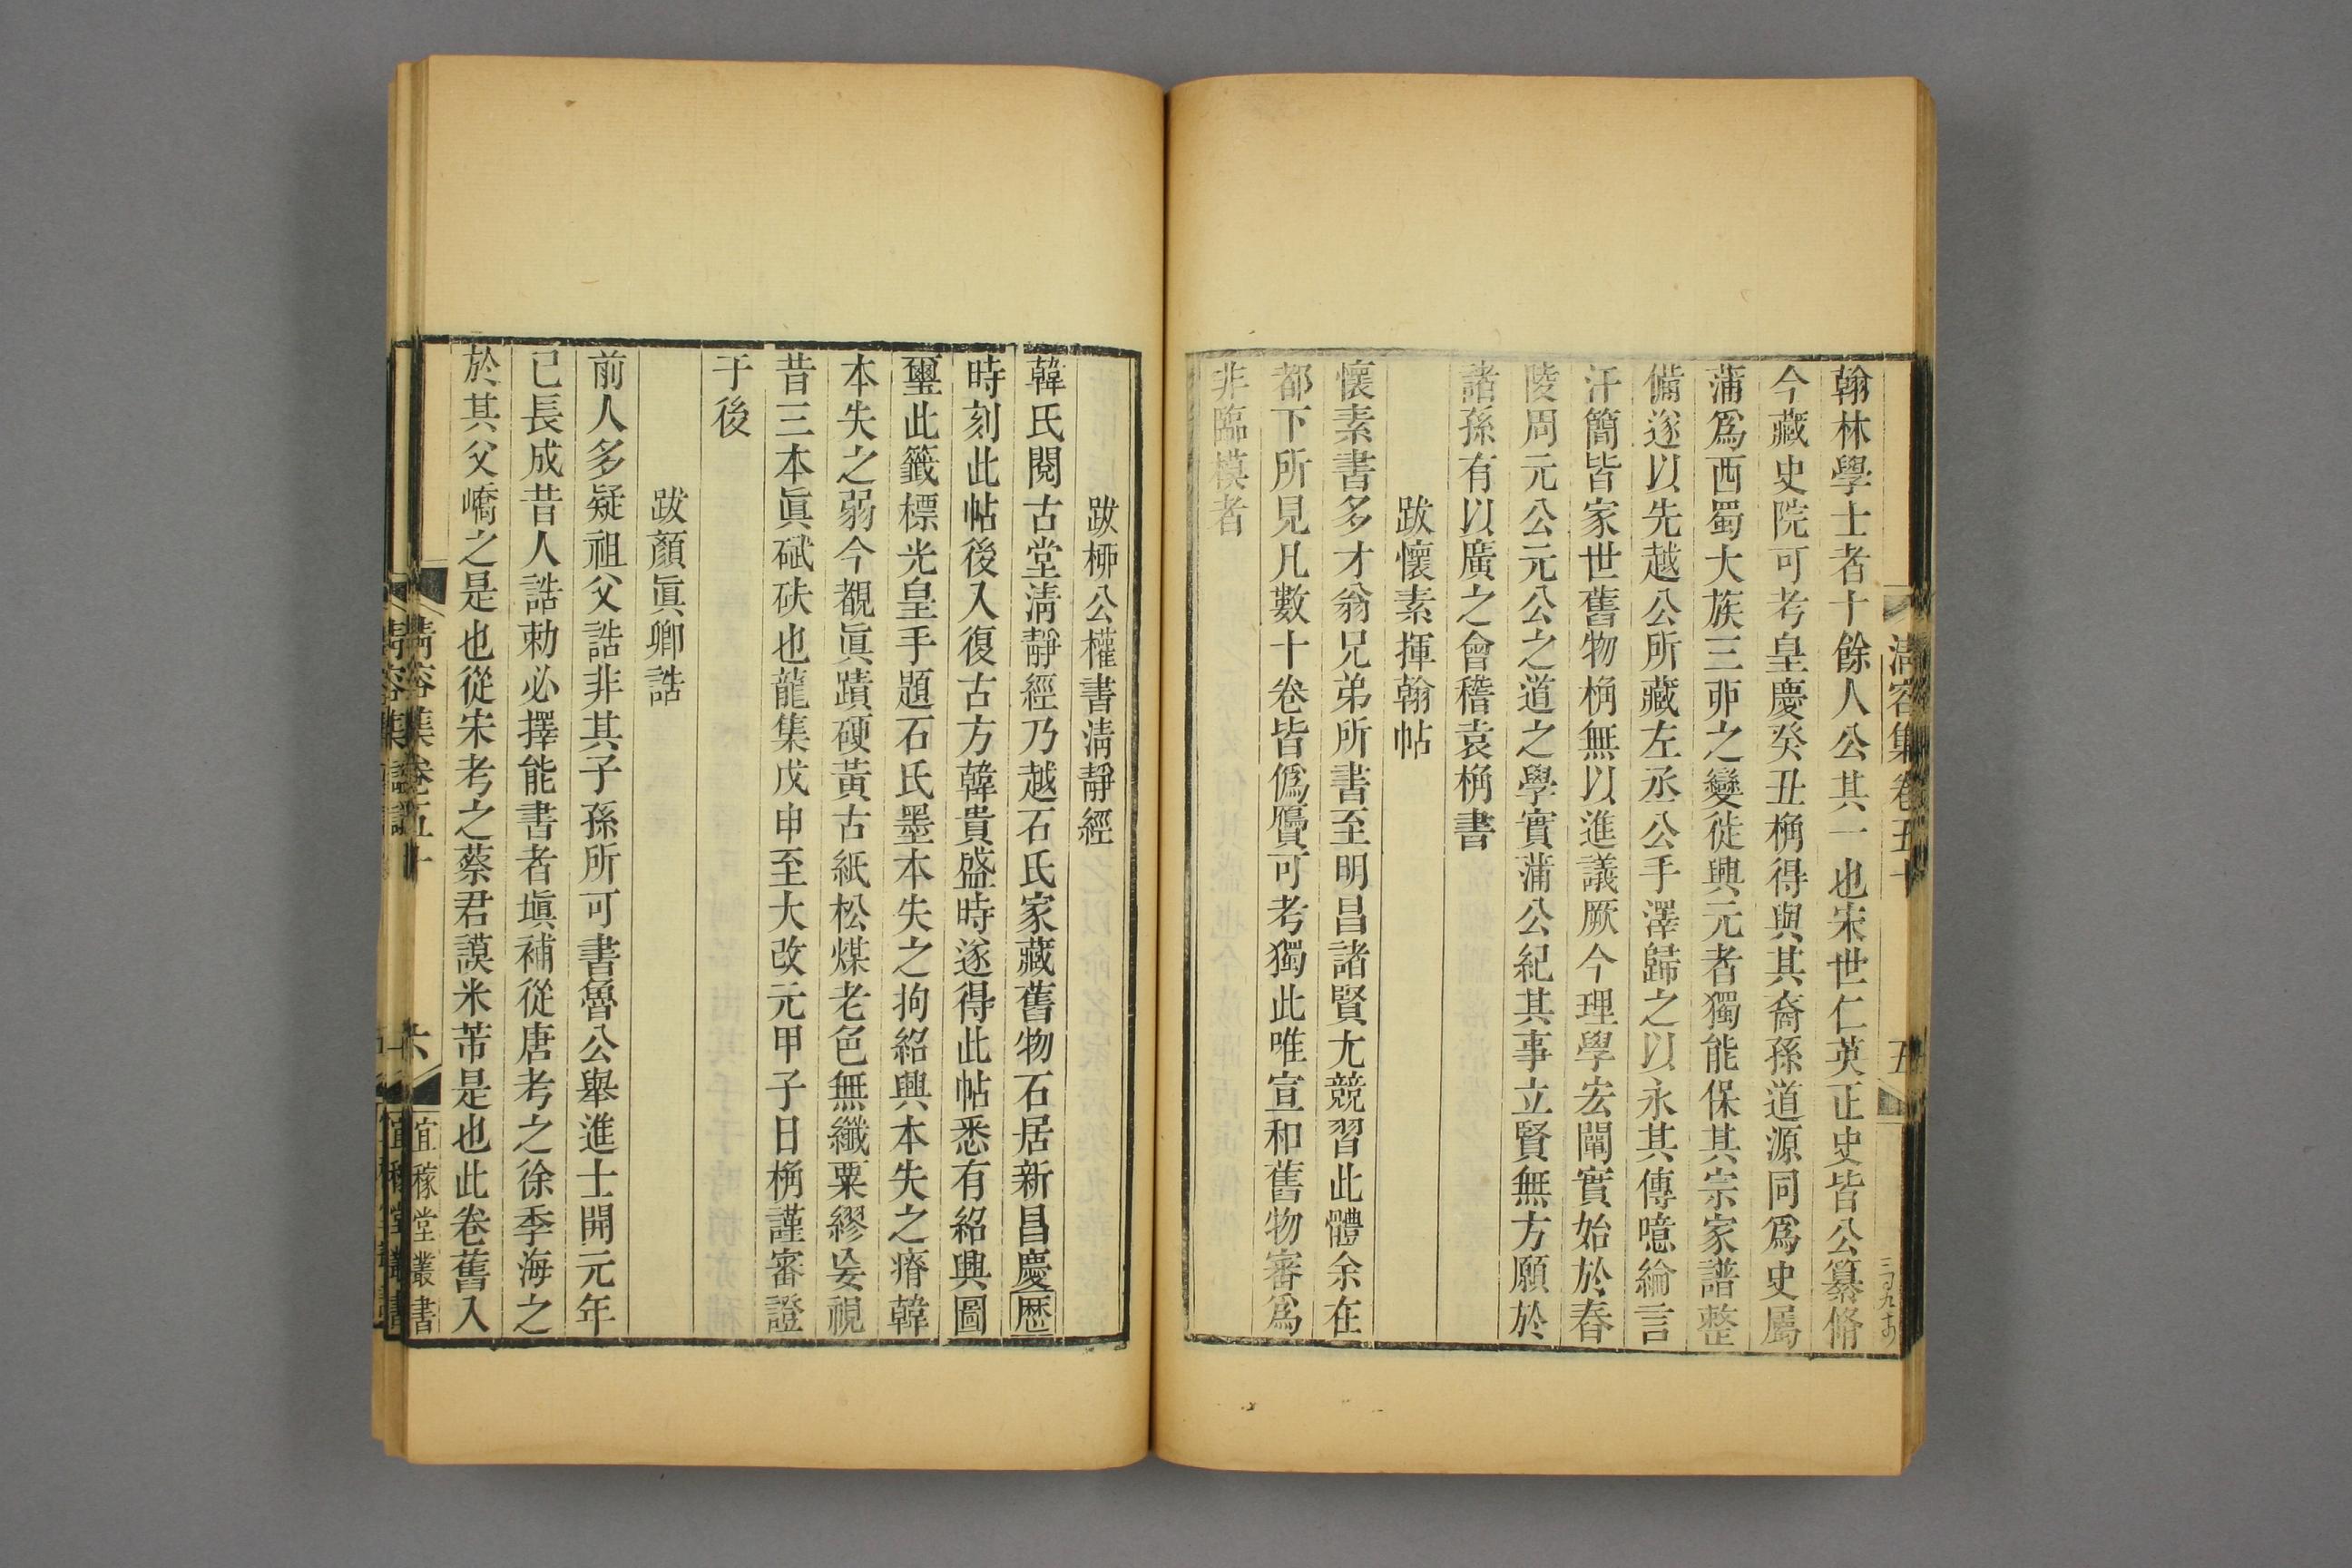 清容集卷五十
五
翰林學士者十餘人公其一也宋世仁英正史皆公纂脩
今藏史院可考皇慶癸丑桷得與其裔孫道源同爲史屬
蒲爲西蜀大族三卯之變徙興元者獨能保其宗家譜整
備遂以先越公所藏左丞公手澤歸之以永其傳噫綸言
汗簡皆家世舊物桷無以進議厥今理學宏闡實始於舂
陵周元公元公之道之學實蒲公紀其事立賢無方願於
諸孫有以廣之會稽袁桷書
跋懷素揮翰帖
懷素書多才翁兄弟所書至明昌諸賢尤競習此體余在
都下所見凡數十卷皆僞贋可考獨此唯宣和舊物審爲
非臨模者
跋柳公權書淸靜經
韓氏閱古堂淸靜經乃越石氏家藏舊物石居新昌慶歷
時刻此帖後入復古方韓貴盛時遂得此帖悉有紹興圖
璽此籤標光皇手題石氏墨本失之拘紹興本失之瘠韓
本失之弱今覩眞蹟硬黃古紙松煤老色無纖粟繆妄視
昔三本眞碔砆也龍集戊申至大改元甲子日桷謹審證
于後
跋顏眞卿誥
前人多疑祖父誥非其子孫所可書魯公舉進士開元年
已長成昔人誥勅必擇能書者塡補從唐考之徐季海之
於其父嶠之是也從宋考之蔡君謨米芾是也此卷舊入
清容集卷五十
六
宜稼堂叢書